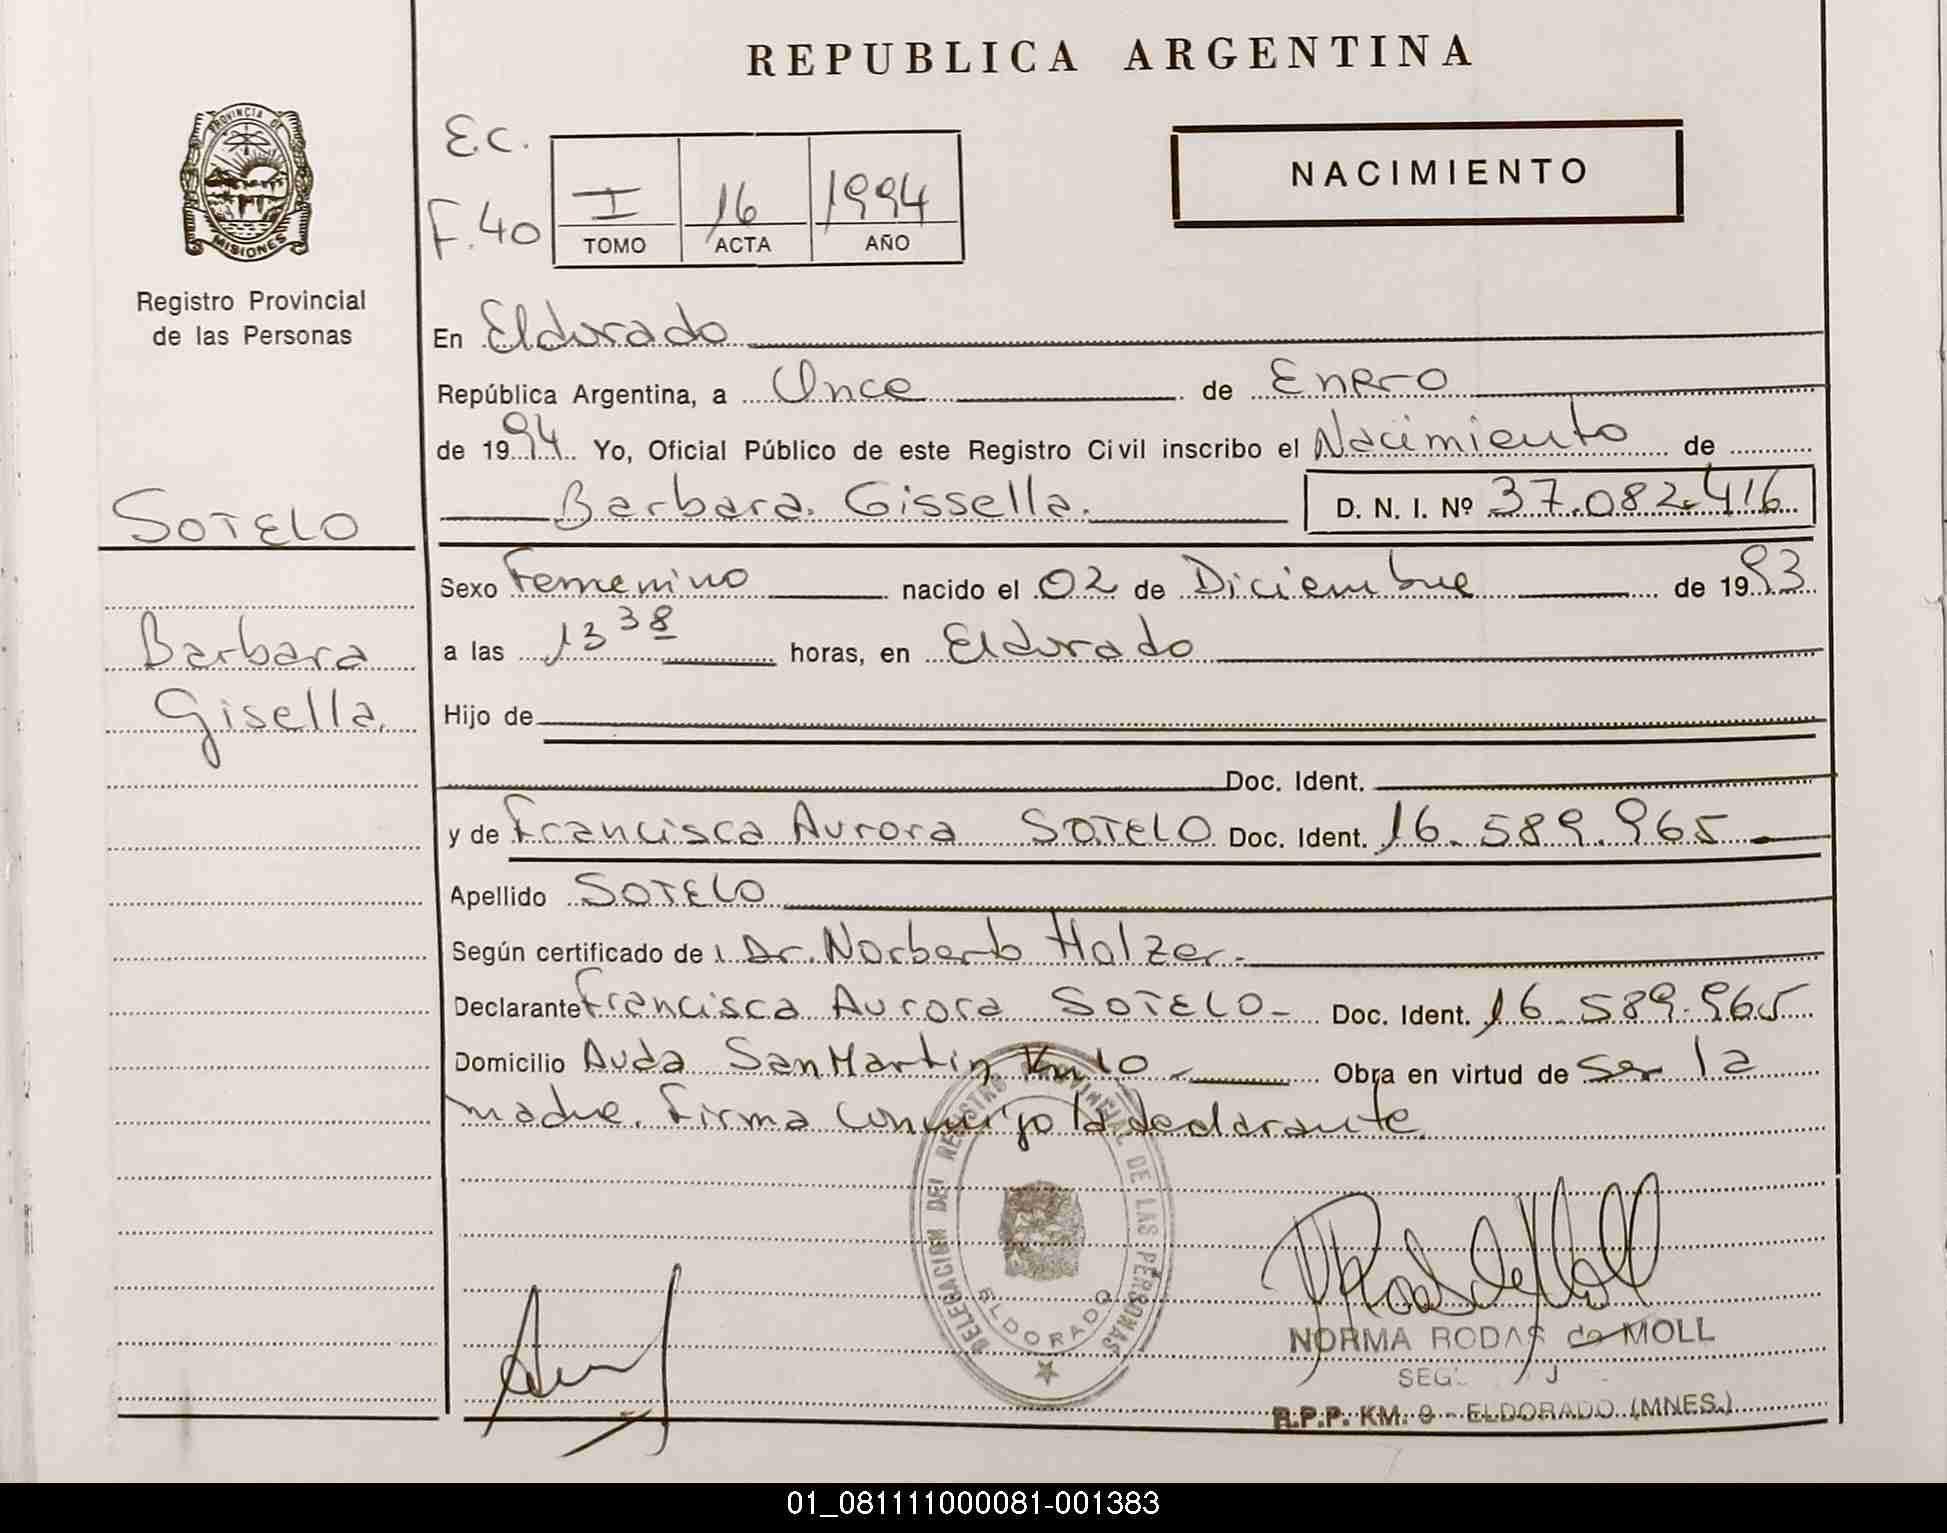 REPUBLICA ARGENTINA
PROVINCIA DE
MISIONES
Registro Provincial
de las Personas
E.C.
F.40
I 16 1994
TOMO ACTA AÑO
NACIMIENTO
En Eldorado
República Argentina, a Once de Enero
de 1994 Yo, Oficial Público de este Registro Civil inscribo el Nacimiento de
Barbara. Gissella. D. N. I. Nº 37.082.416
SOTELO
Barbara
Gisella.
Sexo Femenino nacido el 02 de Diciembre de 1993
a las 13 38 horas, en Eldorado
Hijo de
Doc. Ident.
y de Francisca Aurora SOTELO Doc. Ident. 16.589.965
Apellido SOTELO
Según certificado de Dr. Norberto Holzer.
Declarante Francisca Aurora SOTELO Doc. Ident. 16.589.965
Domicilio Avda San Martin Km 10 Obra en virtud de ser la
madre. Firma conmigo la declarante.
DELEGACION DEL REGISTRO PROVINCIAL DE LAS PERSONAS
ELDORADO
NORMA RODAS de MOLL
R.P.P. KM. 9 - ELDORADO (MNES.)
01_081111000081-001383